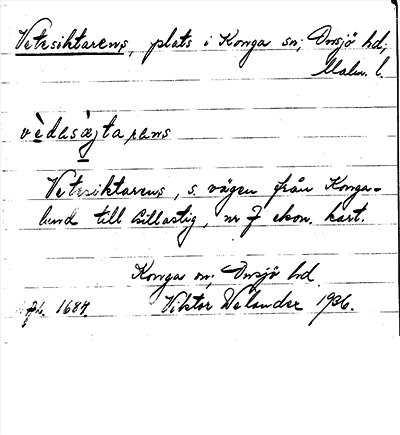 Vetesiktarens, plats i Konga sn; Onsjö hd,
Malm. l.
vèdesæjtarans
Vetesiktarens, s. vägen från Konga-
lund till Billastig, nr 7 ekon. kart.
Konga sn; Onsjö hd
1684 Viktor Welander 1936.